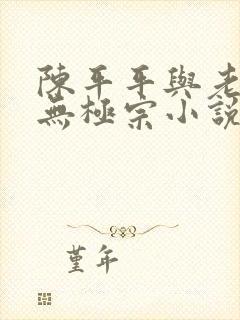 陳平平與老
無極宗小説
堇年